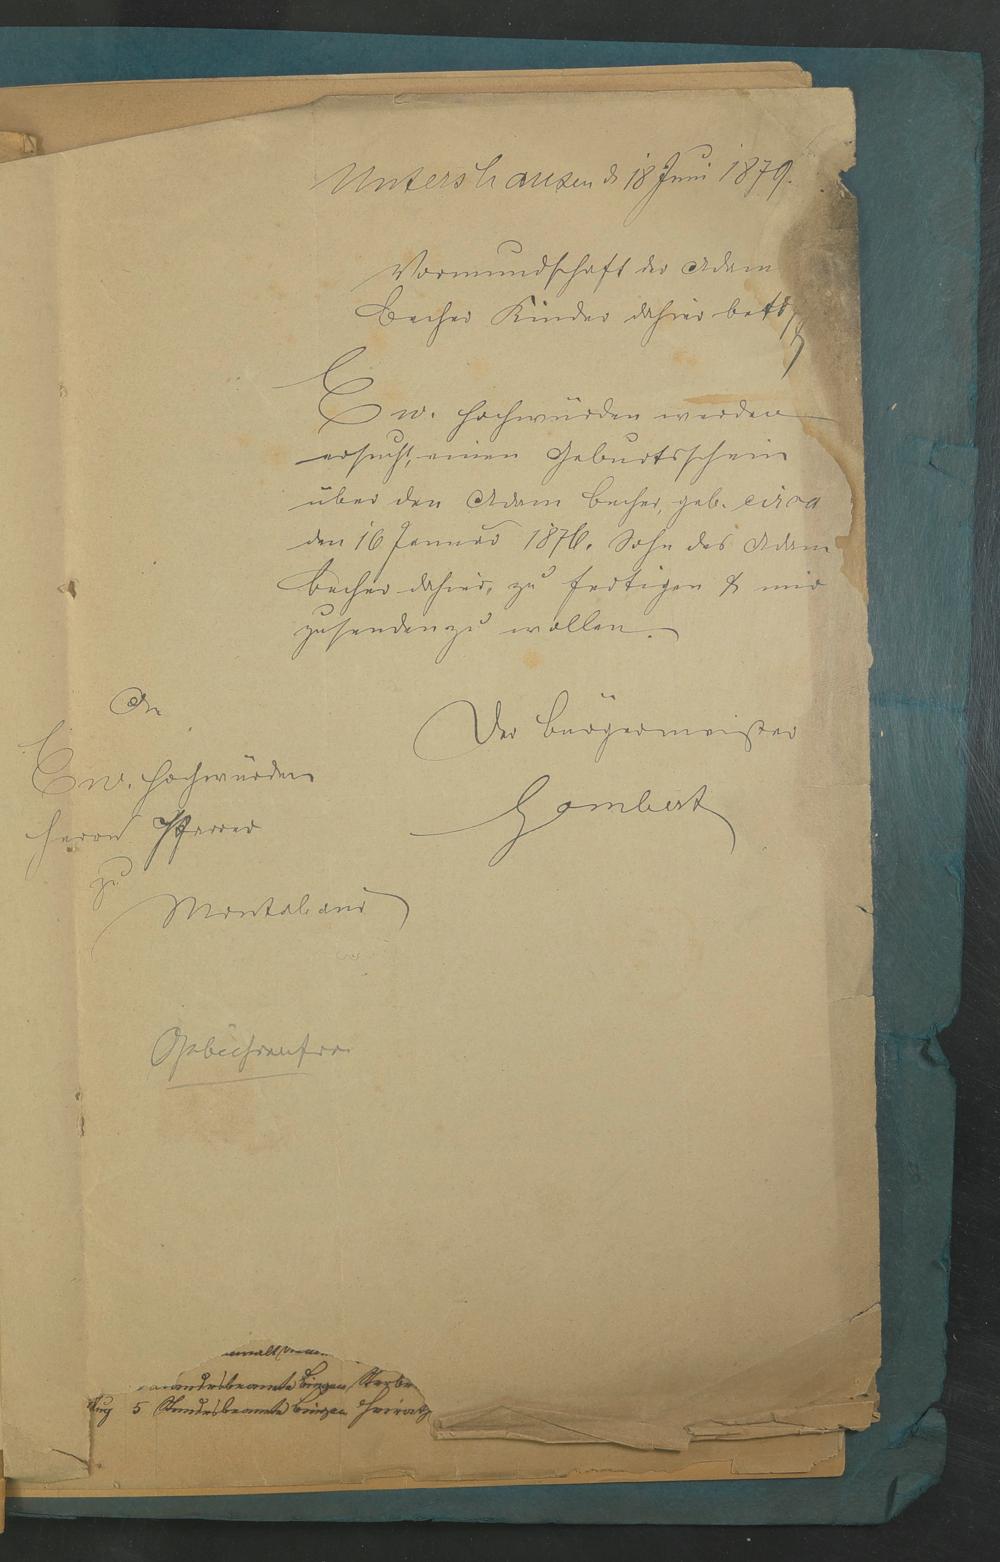 Untershausen d 18 Juni 1879.
Vormundschaft der Adam
Becher Kinder dahier betr.
Ew. Hochwürden werden
ersucht, einen Geburtsschein
über den Adam Becher, geb. circa
den 16 Januar 1876. Sohn des Adam
Becher dahier, zu fertigen & mir
zusenden zu wollen.
Der Bürgermeister
Gombert
An
Ew. Hochwürden
Herrn Pfarrer
zu
Montabaur
Gebührenfrei
Standesbeamte Bingen
Aug 5 Standesbeamte Bingen